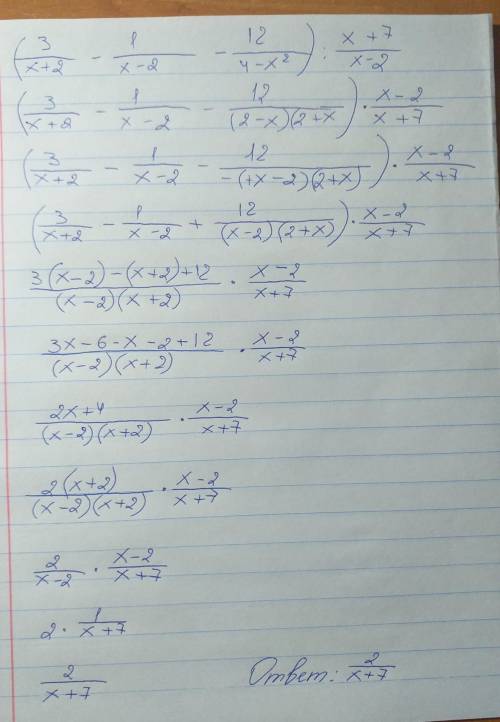 (3/(x+2) - 1/(x-2) - 12/(4-x²)) : (x+7)/(x-2)
(3/(x+2) - 1/(x-2) - 12/((2-x)(2+x))) · (x-2)/(x+7)
(3/(x+2) - 1/(x-2) - 12/(-(+x-2)(2+x))) · (x-2)/(x+7)
(3/(x+2) - 1/(x-2) + 12/((x-2)(2+x))) · (x-2)/(x+7)
(3(x-2)-(x+2)+12)/((x-2)(x+2)) · (x-2)/(x+7)
(3x-6-x-2+12)/((x-2)(x+2)) · (x-2)/(x+7)
(2x+4)/((x-2)(x+2)) · (x-2)/(x+7)
2(x+2)/((x-2)(x+2)) · (x-2)/(x+7)
2/(x-2) · (x-2)/(x+7)
2 · 1/(x+7)
2/(x+7) Ответ: 2/(x+7)